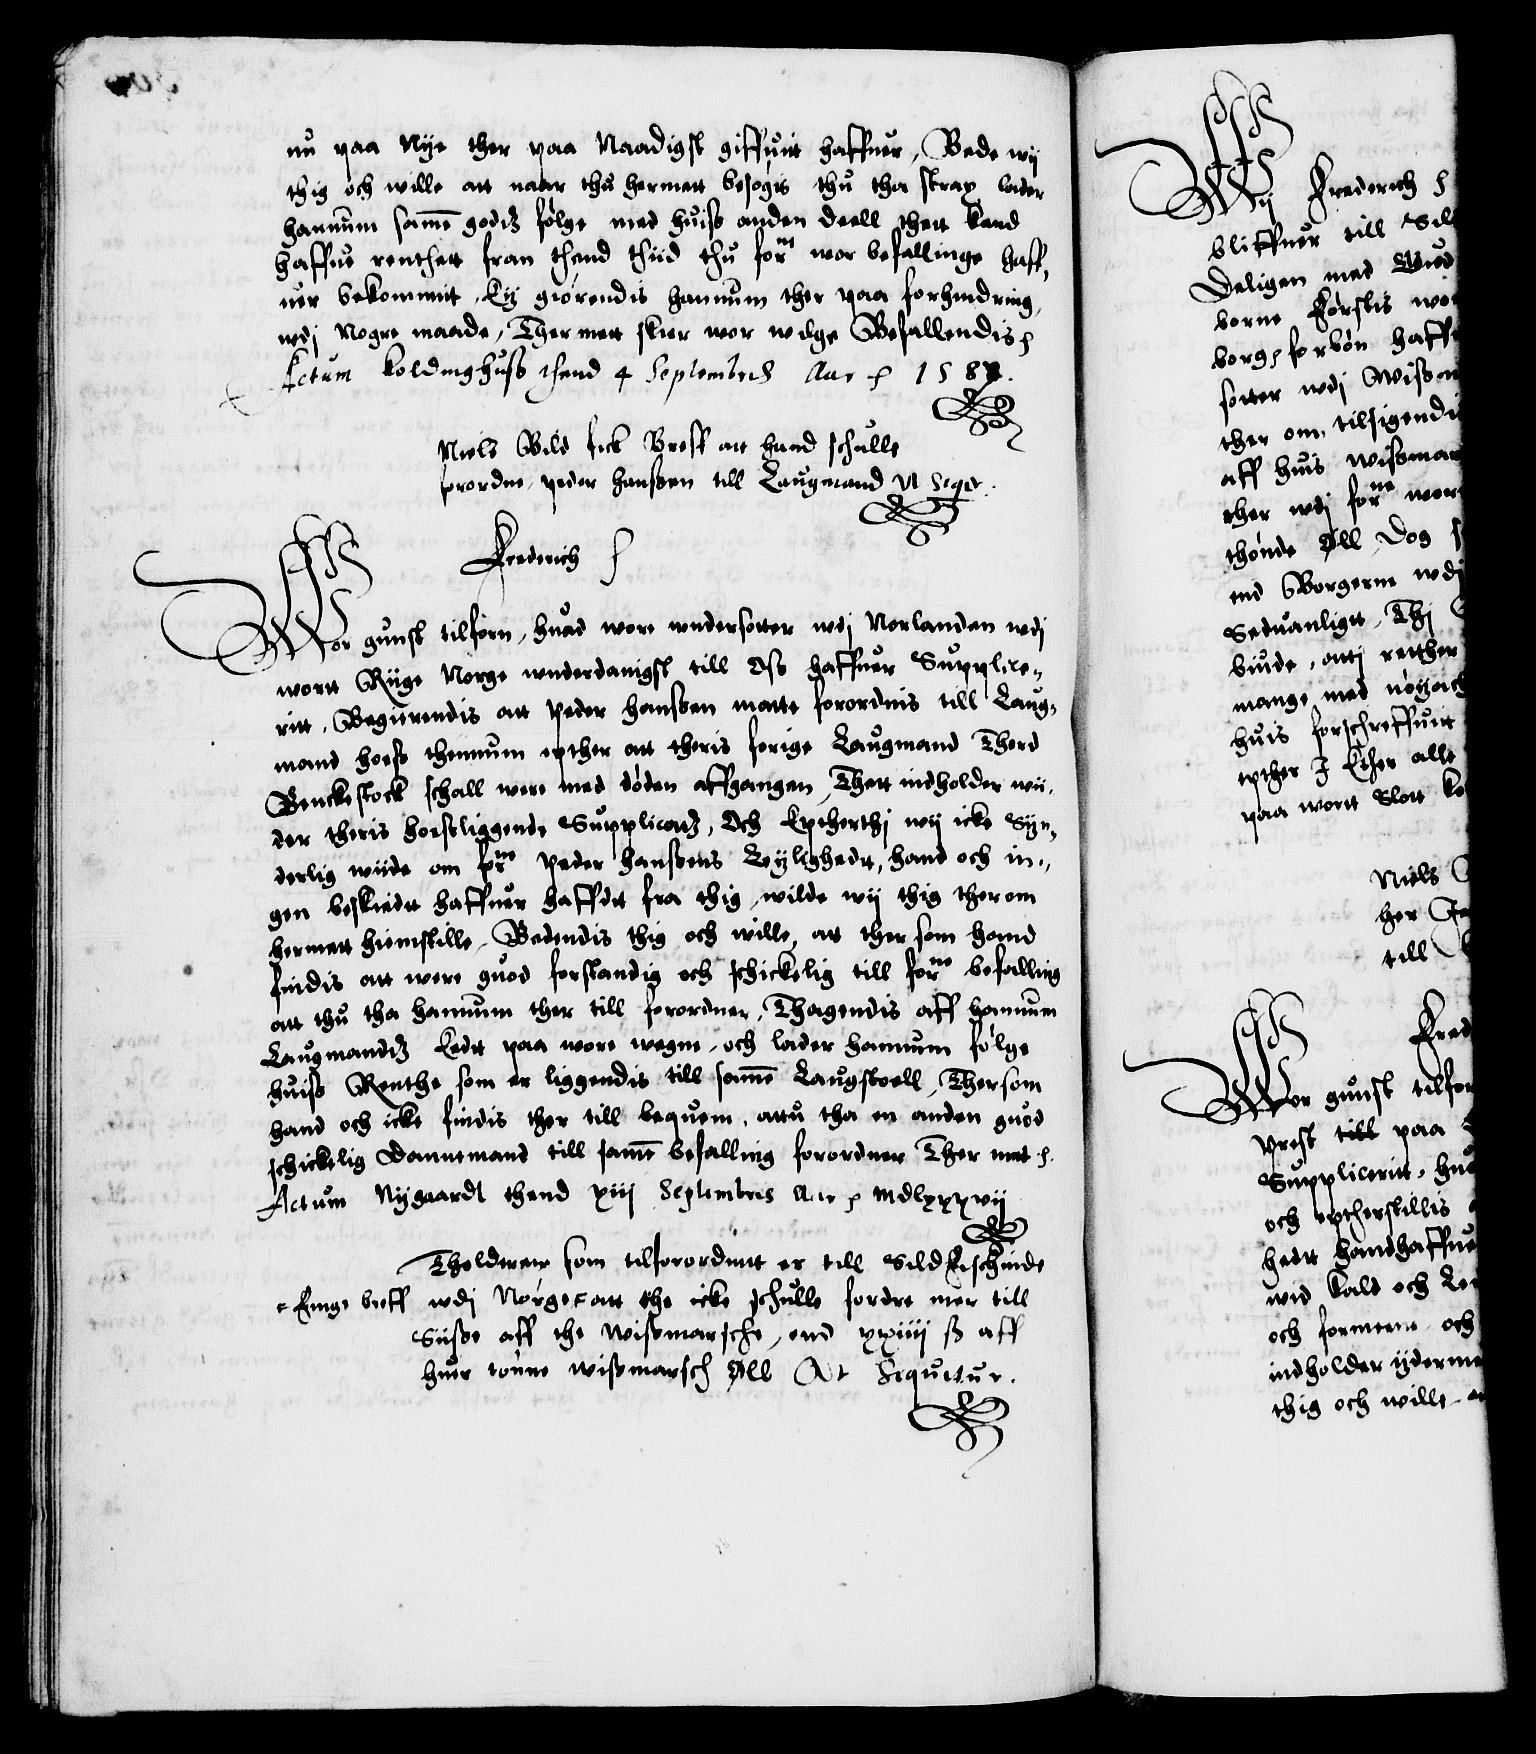 nu paa Nije ther paa Naadigst giffuit haffuer, Bede wij
thig och wille att naar thu hermett besøgis thu tha strax lader
hannum samme godtz følge med huiss anden deell thett kand
haffue renthett fran thend thiid thu forne wor befallinge haff,
uer bekommit, Eij giørendis hannum ther paa forhindring,
wdj Nogre maade, Ther mett skier wor wilge Befallendis
Actum koldinghuss thend 4 Septembris Aar 1587.
Niels Bild fick Breff att hand schulle
forordne peder hanssen till Laugmand Vt Seqr.
Frederich
Wor gunst tilforn, huad wore wndersotter wdj Norlanden wdj
wortt Riige Norge wnderdanigst till Oss haffuer Supplice,
ritt, Begierendis att peder hanssen motte forordnis till Laug,
mand hoess thennum epther att theris forige Laugmand Therd
Benckestock schall were med døden affgangen, Thett indholder wii,
der theris hoessliggende Supplicadz, Och Eptherthj wij icke Syn,
derlig wiide om forne peder hanssens Leijlighedt, hand och in,
gen beskiedtt haffuer haffdtt fra thig, wilde wij thig therom
hermett hiemstille, Bedendis thig och wille, att ther som hand
findis att were guod forstandig och schickelig till forne befalling
att thu tha hannum ther till forordner, Thagendis aff hannum
Laugmandtz Eedtt paa wore wegne, och lader hannum følge
huiss Renthe som er liggendis till samme Laugstoell, Thersom
hand och icke findis ther till bequem, attu tha en anden guod
schickelig Dannemand till samme befalling forordner Ther mett
Actum Nygaardt thend xiij Septembris Aar Mdlxxxvij
Tholderen som tilforordnitt er till Sildfischinde
Finge breff wdj Norge att the icke schulle fordre mer till
Siisse aff the wissmarsche, end xxiiij ß aff
huer tønne wissmarsch Øll Vt Sequitur.
Wij Frederich
bliffuer till Sil
Deligen med
borne Førstis
borgs forbøn haff
sotter wdj Wissm
ther om, tilsigendis
aff huis wissmar
ther wdj forne wor
thønde Øll, Dog
end Borgerne wdj
Seduanligtt, Thj
biude, att retther
mange med nøijach
huis forschreffuitt
epther J Ether alle
paa wortt Slott
Niels
her
till
Fred
Wor gunst tilfor
prest till paa
Suppliceritt, hu
och eptherstillis
hedtt handhaffue
wid kald och
och formene och
indholder ijderme
thig och wille